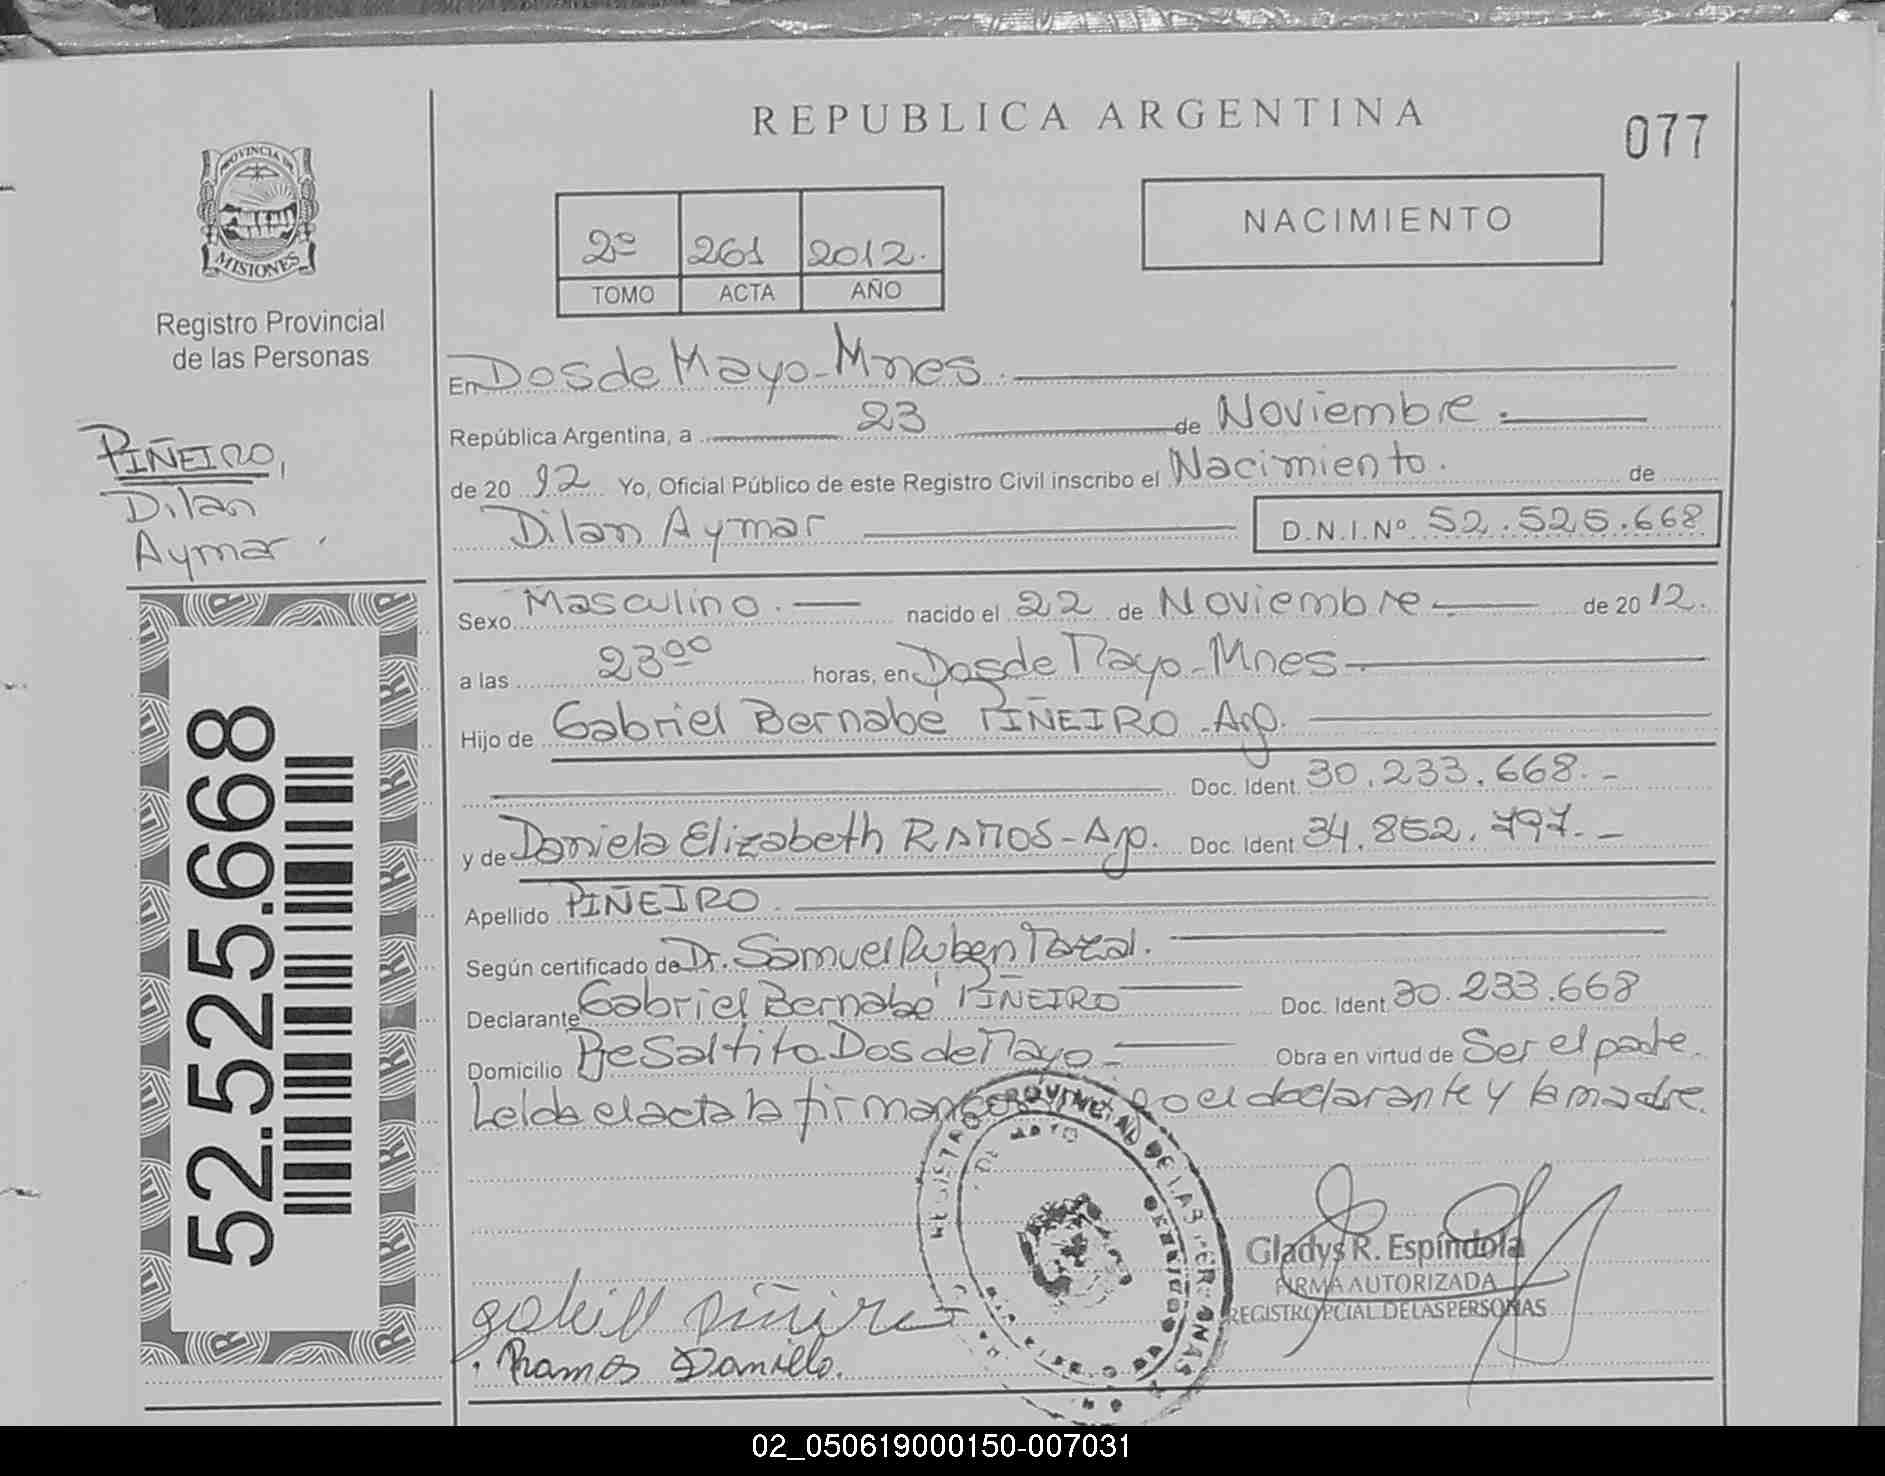 REPUBLICA ARGENTINA
077
PROVINCIA DE
MISIONES
Registro Provincial
de las Personas
2º 261 2012.
TOMO ACTA AÑO
NACIMIENTO
PIÑEIRO,
Dilan
Aymar
52.525.668
En Dos de Mayo - Mnes.
República Argentina, a 23 de Noviembre
de 20 12 Yo, Oficial Público de este Registro Civil inscribo el Nacimiento. de
Dilan Aymar D.N.I.Nº 52.525.668
Sexo Masculino. nacido el 22 de Noviembre de 20 12.
a las 23 00 horas, en Dos de Mayo - Mnes
Hijo de Gabriel Bernabé PIÑEIRO - Arg.
Doc. Ident. 30.233.668.-
y de Daniela Elizabeth RAMOS - Arg. Doc. Ident. 34.852.797.-
Apellido PIÑEIRO
Según certificado de Dr. Samuel Ruben
Declarante Gabriel Bernabé PIÑEIRO Doc. Ident. 30.233.668
Domicilio Saltito Dos de Mayo Obra en virtud de Ser el padre.
Leída el acta la firman el declarante y la madre.
REGISTRO PROVINCIAL DE LAS PERSONAS
DE MAYO
Gladys R. Espíndola
FIRMA AUTORIZADA
REGISTRO PCIAL. DE LAS PERSONAS
Ramos
02_050619000150-007031